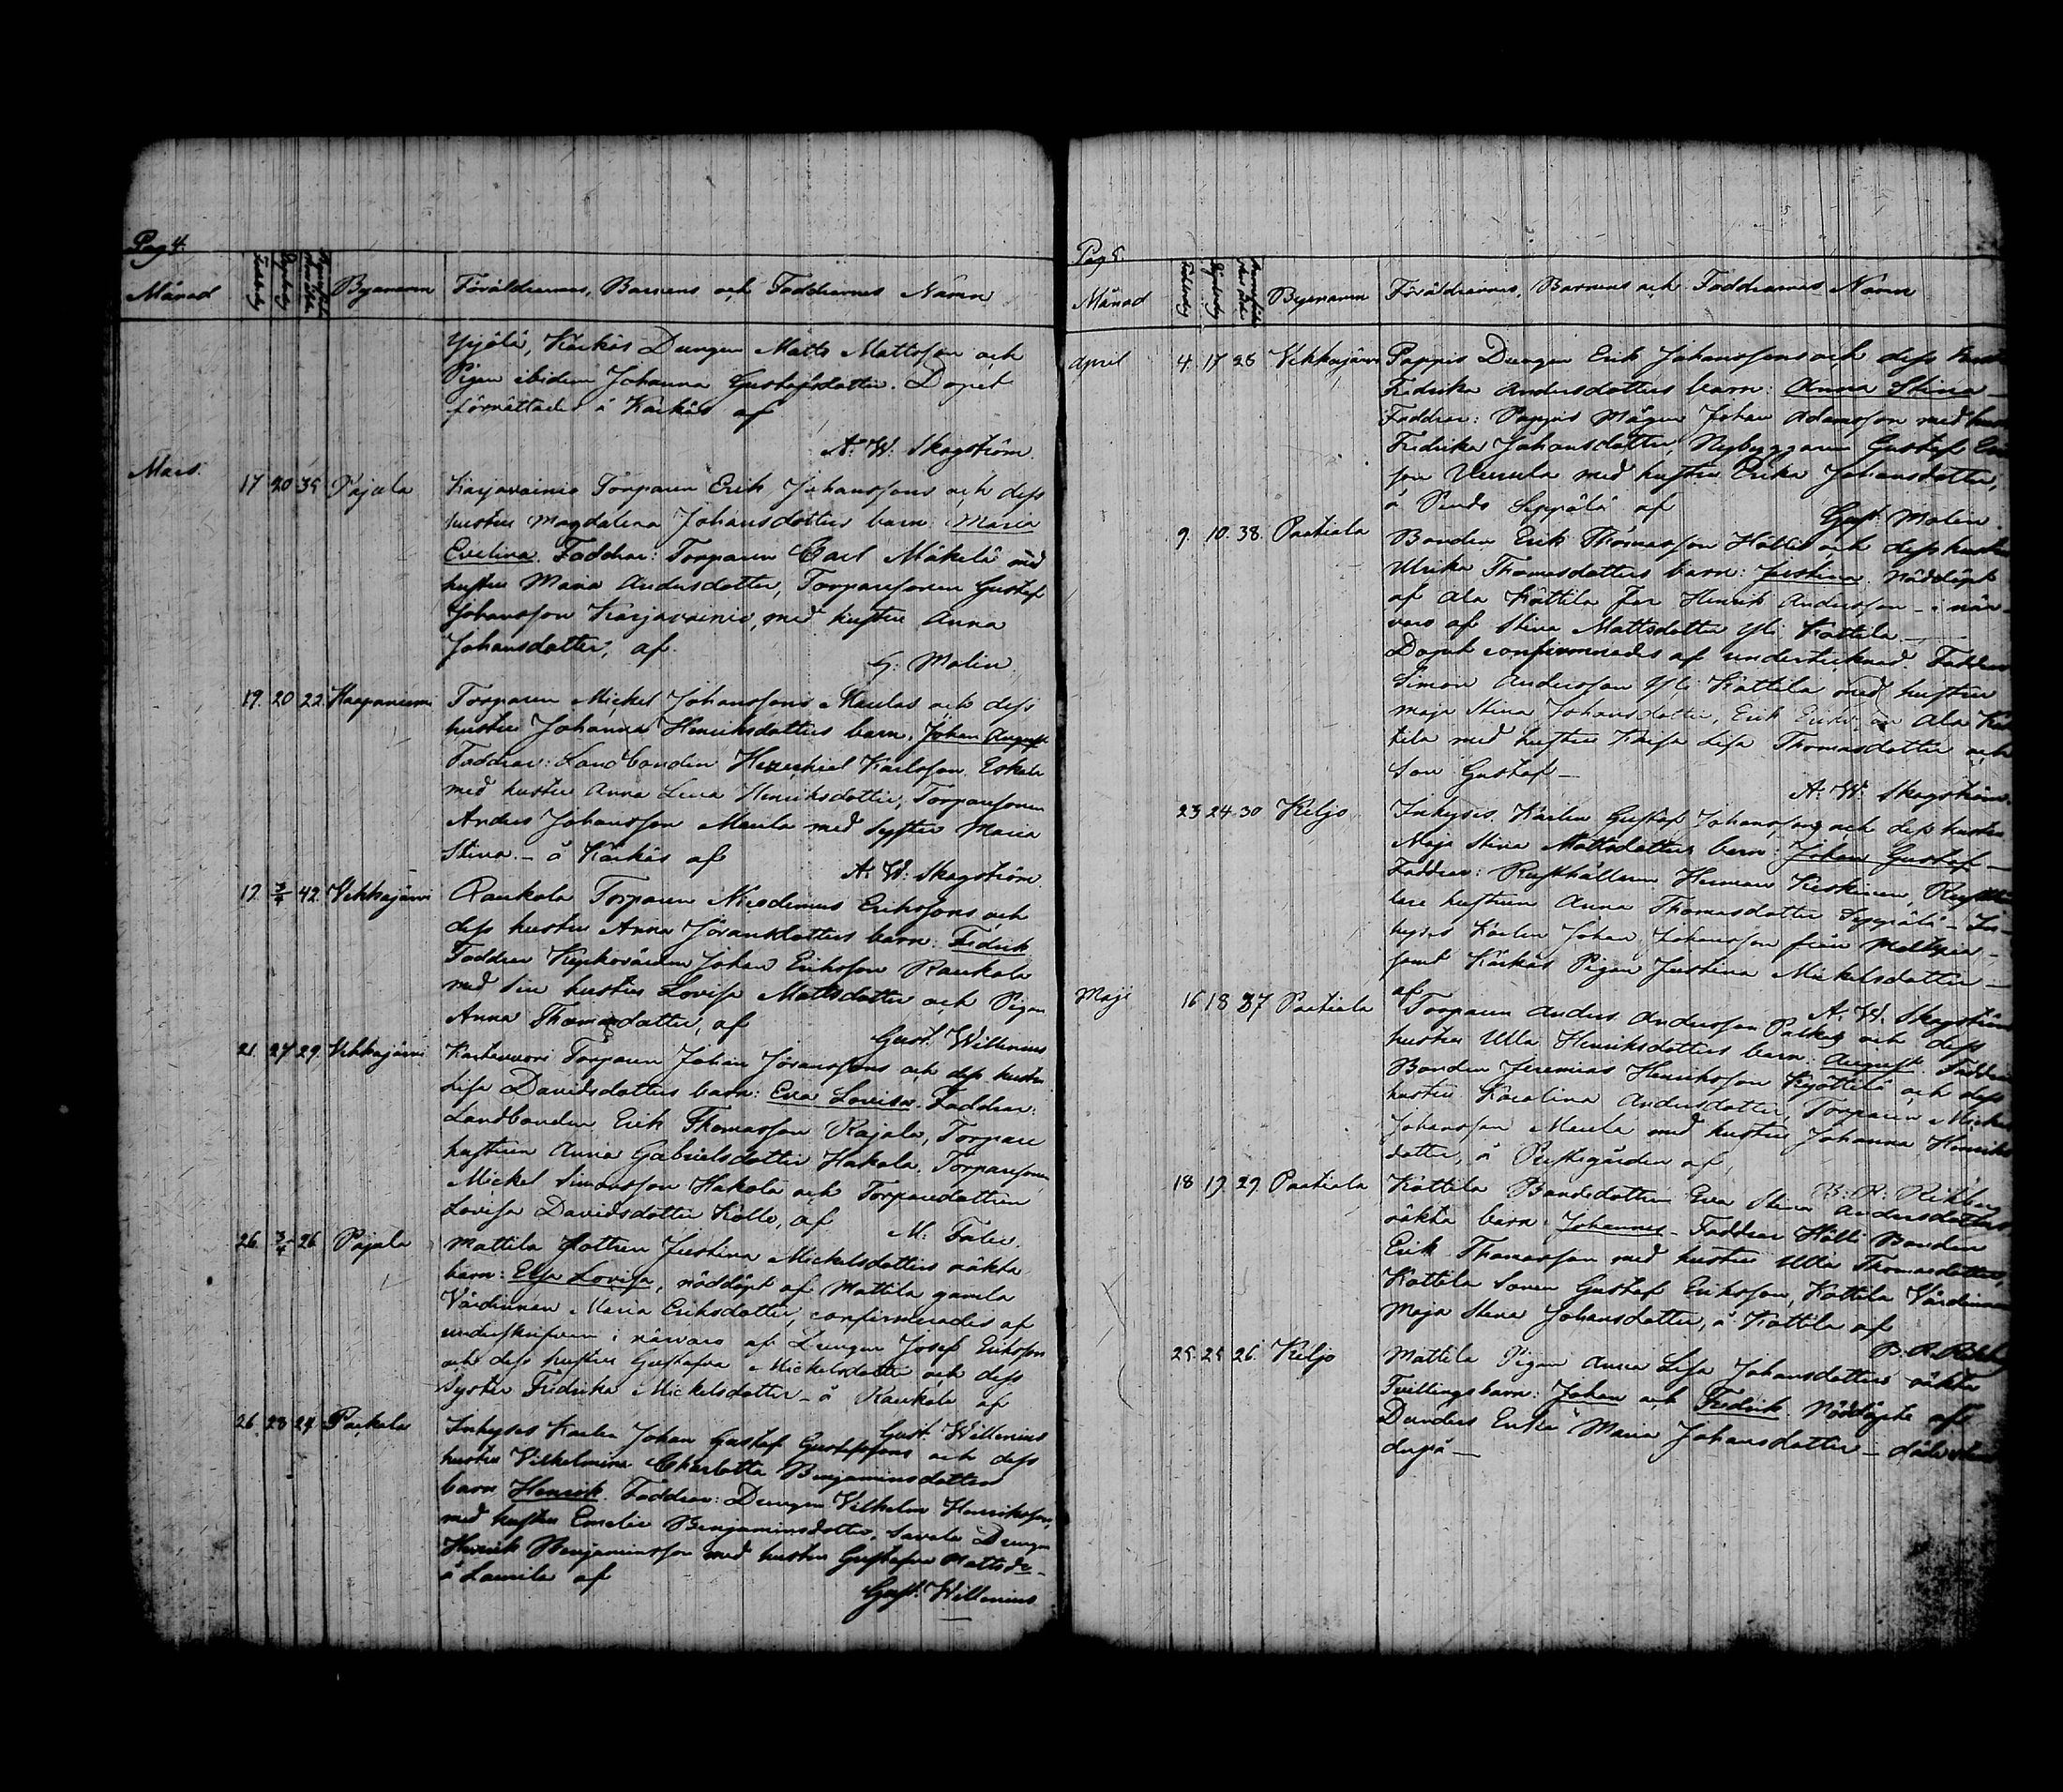 Pag 4.
Månad Byanamn Föräldrarnes, Barnens och Faddrarnes Namn
Yrjölä, Kärkäs Drengen Matts Mattsson och
Pigan ibidem Johanna Gustafsdotter. Dopet
förrättades å Kärkäs af
A. W. Skogström.
Mars.
17 20 35 Pajala Karjavainio Torparen Erik Johanssons och dess
hustrus Magdalena Johansdotters barn: Maria
Evelina. Faddrar: Torparen Carl Mäkelä med
hustru Maria Andersdotter, Torparesonen Gustaf
Johansson Karjavainio, med hustru Anna
Johansdotter, af
G. Molin
19. 20 22 Haapaniemi Torparen Mickel Johanssons Maulas och dess
hustrus Johanna Henriksdotters barn. Johan August
Faddrar: Landbonden Hezechiel Karlsson Eskola
med hustru Anna Lena Henriksdotter, Torparesonen
Anders Johansson Maula med syster Maria
Stina. – å Kärkäs af
A. W. Skogström.
19. 3/4 42. Vekkajärvi Raukola Torparen Nicodemus Erikssons och
dess hustrus Anna Jöransdotters barn: Fredrik
Faddrar Kyrkovärden Johan Eriksson Raukola
med sin hustru Lovisa Mattsdotter och Pigan
Anna Thomasdotter, af
Gust. Willenius
21. 27 29. Vekkajärvi Torparen Johan Jöranssons och dess hustru
Lisa Davidsdotters barn: Eva Lovisa. Faddrar:
Landbonden Erik Thomasson Rajala, Torpare
hustrun Anna Gabrielsdotter Hakola, Torparesonen
Mickel Simonsson Hakola och Torparedottren
Lovisa Davidsdotter Kolle, af
M. Talée.
26. 3/4 26 Pajala Mattila dottren Justina Mickelsdotters oäkta
barn: Elsa Lovisa, nöddöpt af Mattila gamla
Värdinnan Maria Eriksdotter, confirmerades af
underskrifven i närvaro af Drengen Josef Eriksson
och dess hustru Gustafva Mickelsdotter och dess
syster Fredrika Mickelsdotter – å Raukola af
Gust. Willenius
26. 28 24 Parkala Inhyses Karlen Johan Gustaf Gustafssons och dess
hustrus Vilhelmina Charlotta Benjaminsdotters
barn Henrik. Faddrar: Drengen Vilhelm Henriksson,
med hustru Emelie Benjaminsdotter, Savala Drengen
Henrik Benjaminsson med hustru Gustafva Mattsdr.
å Laurila af
Gust. Willenius
Pag 5.
Månad Byanamn Föräldrarnes, Barnens och Faddrarnes Namn
April 4. 17 28 Vekkajärvi Pappis Drengen Erik Johanssons och dess hustru
Fredrika Andersdotters barn: Anna Stina –
Faddrar: Pappis Mågen Johan Adamsson med hustru
Fredrika Johansdotter, Nybyggaren Gustaf
son Uusula med hustru Erika Johansdotter,
å Seppälä af
Gust. Molin.
9. 10. 38. Partiala Bonden Erik Thomasson Hättis och dess hustru
Ulrika Thomasdotters barn: Justina. Nöddöpt
af Ala Kättilä far Henrik Andersson – i när-
varo af Stina Mattsdotter Yli Kättilä –
Dopet confirmerades af undertecknad. Faddrar
Simon Andersson Yli Kättilä med hustrun
Maja Stina Johansdotter, Erik Ala Kät
tilä med hustru Kajsa Lisa Thomasdotter och
Son Gustaf –
A. W. Skogström.
23 24 30 Keljo Inhyses Karlen Gustaf Johanssons och dess hustru
Maja Stina Mattsdotters barn: Johan Gustaf –
Faddrar: Rusthållaren Herman Keskinen, Rusthål
lare hustrun Anna Thomasdotter Seppälä – In-
hyses Karlen Johan Johansson från
samt Kärkäs Pigan Justina Mickelsdotter –
af
A. W. Skogström
Maji 16 18 37 Partiala Torparen Anders Andersson och dess
hustru Ulla Henriksdotters barn: August. Faddrar
Bonden Jeremias Henriksson Kyöttilä och dess
hustru Karolina Andersdotter, Torparen Mickel
Johansson Maula med hustru Johanna Henriks
dotter, å Prestgården af,
18 19. 29. Partiala Kättilä Bondedottren Eva Stina Andersdotters
oäkta barn: Johannes – Faddrar Hätti Bonden
Erik Thomasson med hustru Ulla Thomasdotter,
Kättilä Sonen Gustaf Eriksson, Kättilä Värdinnan
Maja Stina Johansdotter, å Kättilä af
25. 25 26. Keljo Mattila Pigan Anna Lisa Johansdotters oäkta
Tvillingsbarn: Johan och Fredrik. Nöddöpte af
Enka Maria Johansdotter –
derpå –